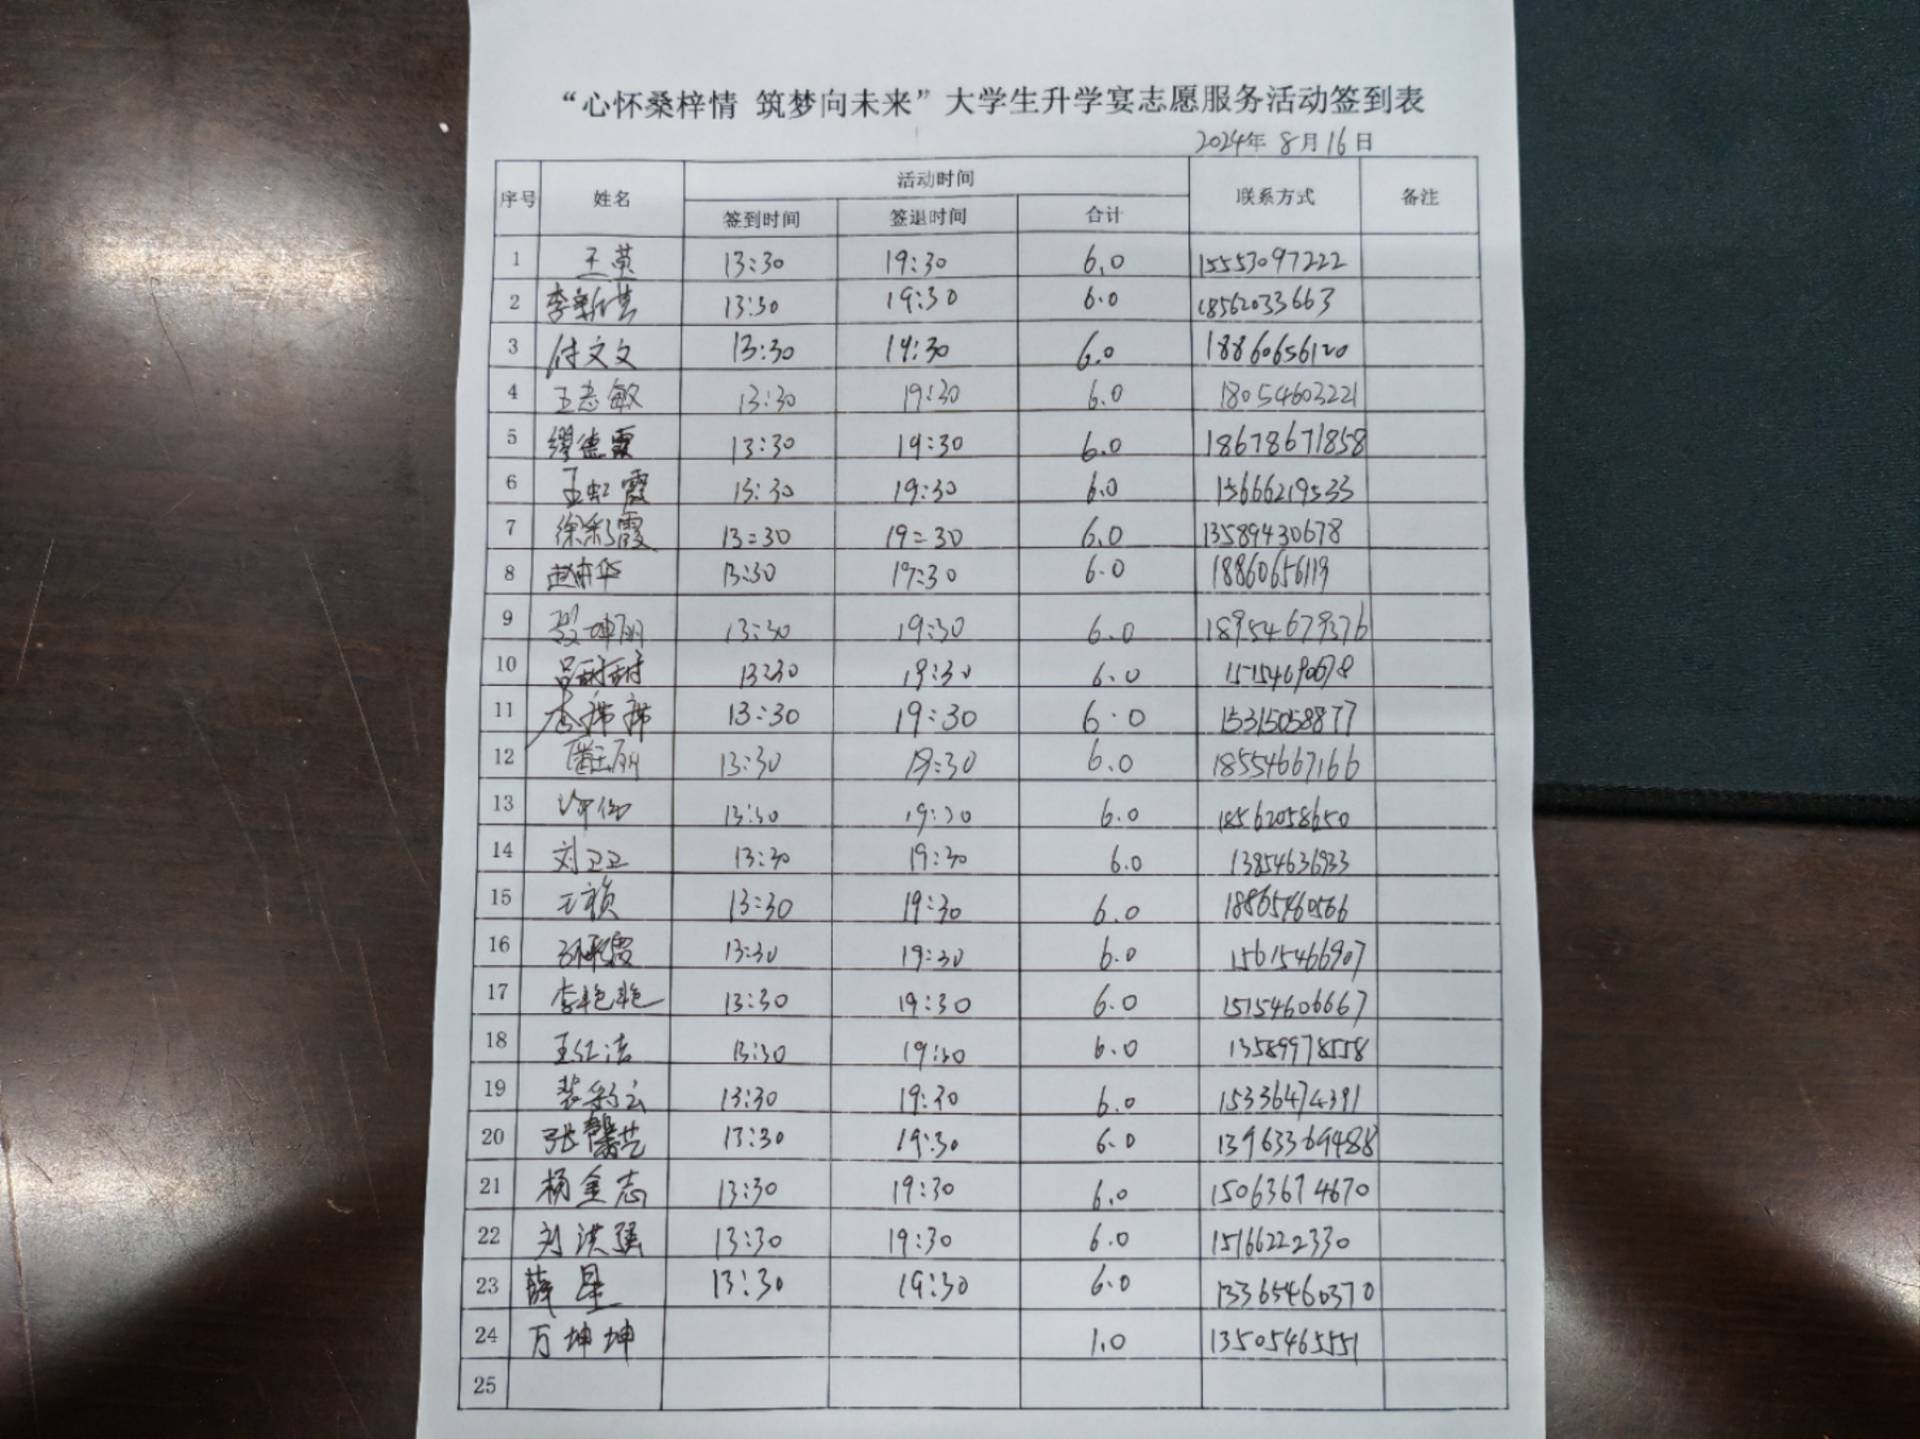 “心怀桑梓情 筑梦向未来”大学生升学宴志愿服务活动签到表
2024年 8月16日
序号 姓名 活动时间 联系方式 备注
签到时间 签退时间 合计
1 王英 13:30 19:30 6.0 15553097222
2 李新芸 13:30 19:30 6.0 18562033663
3 付文文 13:30 19:30 6.0 18860656120
4 王志敏 13:30 19:30 6.0 18054603221
5 缪德霞 13:30 19:30 6.0 18678671858
6 王虹霞 13:30 19:30 6.0 15666219533
7 徐彩霞 13:30 19:30 6.0 13589430678
8 赵 华 13:30 19:30 6.0 18860656119
9 坤丽 13:30 19:30 6.0 18954679376
10 吕甜甜 13:30 19:30 6.0 15154690678
11 李席席 13:30 19:30 6.0 15315058877
12 丽 13:30 19:30 6.0 18554667166
13 13:30 19:30 6.0 18562058650
14 刘卫卫 13:30 19:30 6.0 13854636933
15 王祯 13:30 19:30 6.0 18865460566
16 霞 13:30 19:30 6.0 15615466907
17 李艳艳 13:30 19:30 6.0 15154606667
18 王红洁 13:30 19:30 6.0 13589978558
19 裴彩云 13:30 19:30 6.0 15336474391
20 张馨艺 13:30 19:30 6.0 13963369488
21 杨金志 13:30 19:30 6.0 15063674670
22 刘洪强 13:30 19:30 6.0 15166222330
23 薛星 13:30 19:30 6.0 13365460370
24 万坤坤 1.0 13505465551
25